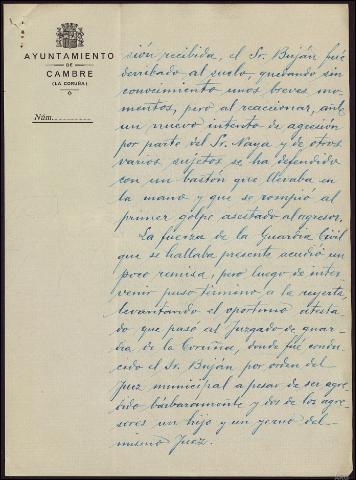 AYUNTAMIENTO
DE
CAMBRE
(LA CORUÑA)
Núm.
sión recibida, el Sr. Buján fué
derribado al suelo, quedando sin
conocimiento unos breves mo-
mentos, pero al reaccionar, ante
un nuevo intento de agresión
por parte del Sr. Naya y de otros
varios sujetos se ha defendido
con un bastón que llevaba en
la mano y que se rompió al
primer golpe asestado al agresor.
La fuerza de la Guardia Civil
que se hallaba presente acudió un
poco remisa, pero luego de inter
venir puso término a la reyerta,
levantando el oportuno atesta
do que pasó al Juzgado de guar-
dia de la Coruña, donde fué condu
cido el Sr. Buján por orden del
Juez municipal a pesar de ser agre
dido bárbaramente y dos de los agre-
sores un hijo y un yerno del
mismo Juez.